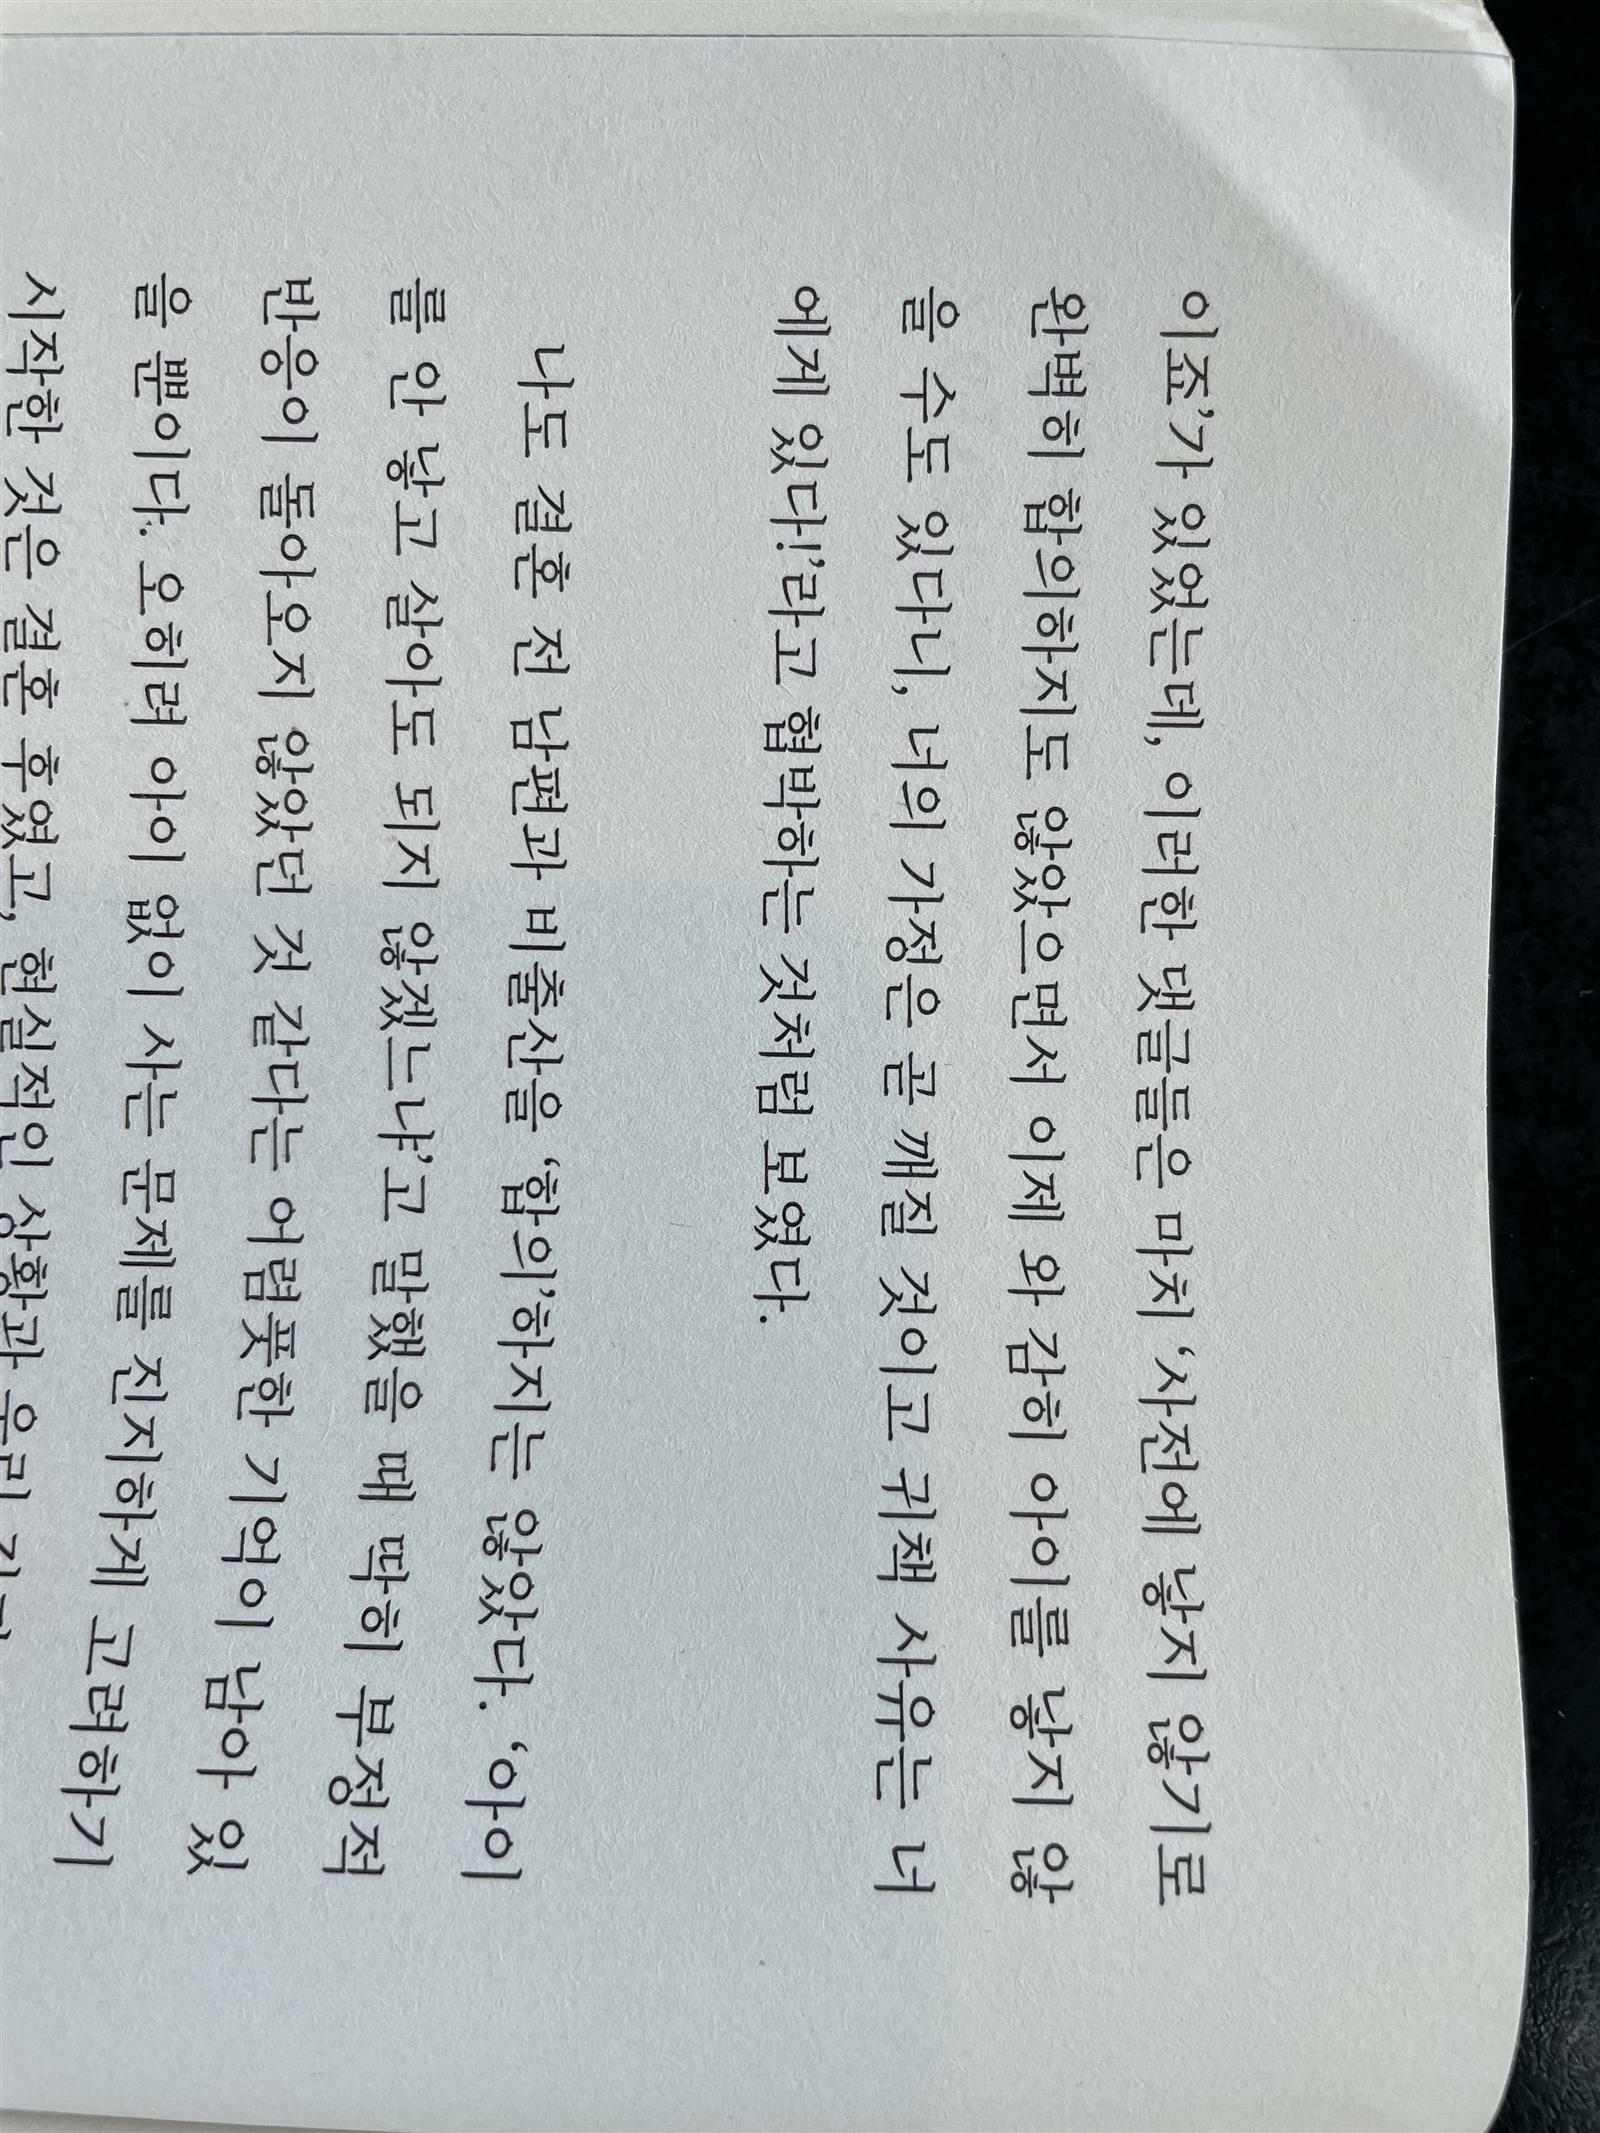 이죠'가 있었는데, 이러한 댓글들은 마치 '사전에 낳지 않기로
완벽히 합의하지도 않았으면서 이제 와 감히 아이를 낳지 않
을 수도 있다니, 너의 가정은 곧 깨질 것이고 귀책 사유는 너
에게 있다!'라고 협박하는 것처럼 보였다.
나도 결혼 전 남편과 비출산을 '합의'하지는 않았다. '아이
를 안 낳고 살아도 되지 않겠느냐'고 말했을 때 딱히 부정적
반응이 돌아오지 않았던 것 같다는 어렴풋한 기억이 남아 있
을 뿐이다. 오히려 아이 없이 사는 문제를 진지하게 고려하기
시작한 것은 결혼 후였고, 현실적인 상황과 우리